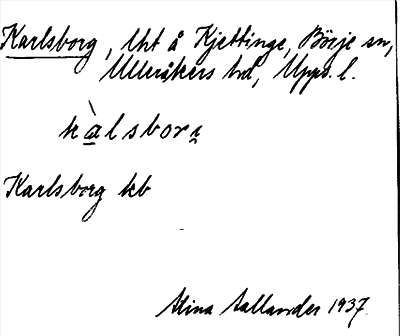 Karlsborg, lht å Kjettinge, Börje sn,
Ulleråkers hd, Upps. l.
kàlsborı̭
Karlsborg kb
Stina Sallander 1937.